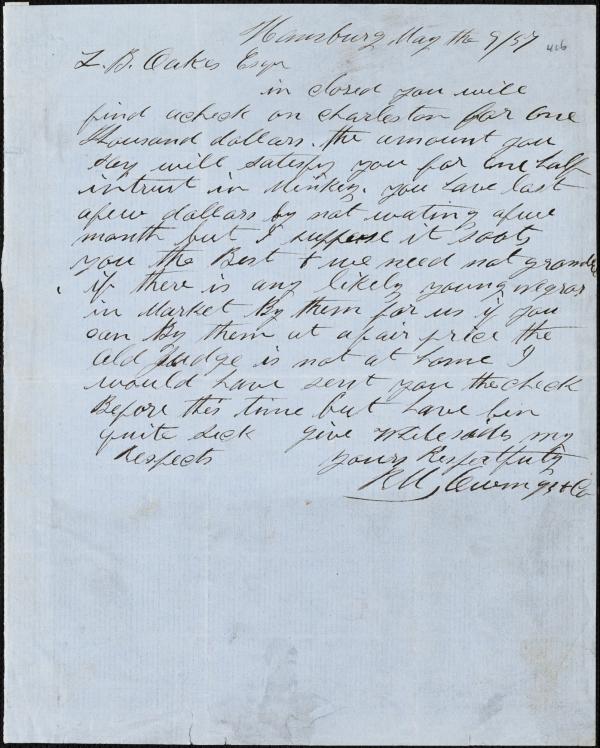 Hamburg May the 9/57 416
Z. B. Oakes Esqr
in closed you will
find acheck on charleston for one
thousand dollars. the amount you
say will satisfy you for one half
intrust in Minkey. you have lost
afew dollars by not wating afue
month but I suppose it soots
you the Best & we need not grumble
if there is any likely young negros
in Market By them for us if you
can By them at afair price the
old Judge is not at home I
would have sent you the check
Before this time but have bin
quite sick give Whitesides my
Respects yours Respectfuly
Owings & Co